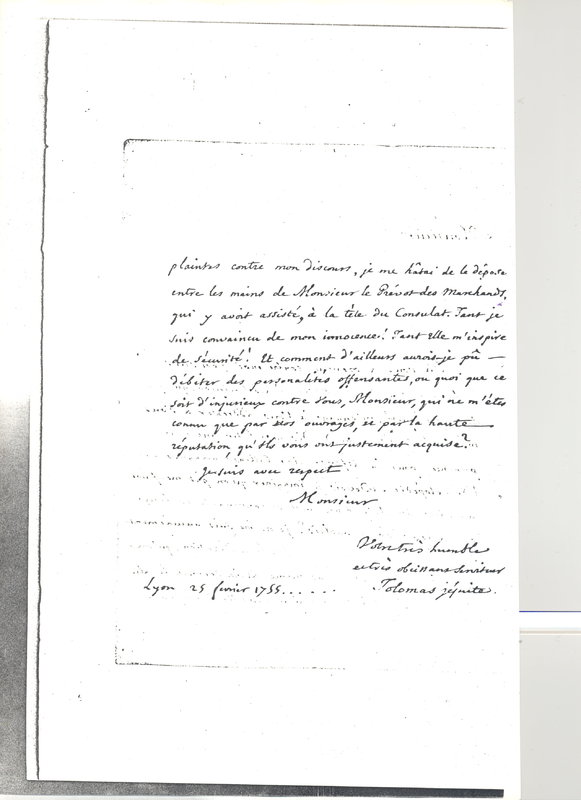 plaintes contre mon discours, je me hâtai de le dépose
entre les mains de Monsieur le Prévot des Marchands,
qui y avoit assisté, à la tête du Consulat. Tant je
suis convaincu de mon innocence! Tant Elle m'inspire
de sécurité! Et comment d'ailleurs aurois-je pû —
débiter des personalités offensantes, ou quoi que ce
soit d'injurieux contre vous, Monsieur, qui ne m'êtes
connu que par vos ouvrages, et par la haute
réputation, qu'ils vous ont justement acquise?
Je suis avec respect
Monsieur
Votre très humble
et très obeissant serviteur
Tolomas jésuite.
Lyon 25 fevrier 1755......